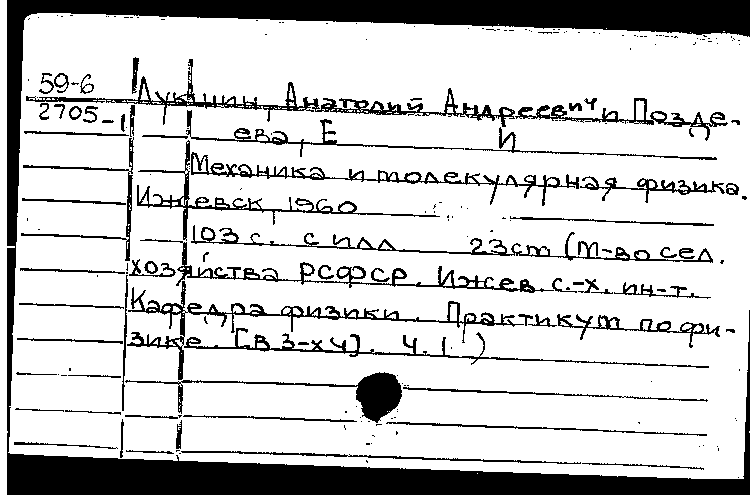 59-6
2705-1
Лукшин, Анатолий Андреевич и Позде-
ева, Е И
Механика и молекулярная физика.
Ижевск, 1960
103 с. с илл 23 cm (М-во сел.
хозяйства РСФСР. Ижев. с.-х. ин-т.
Кафедра физики. Практикум по фи-
зике. [В 3-х ч]. Ч. 1)